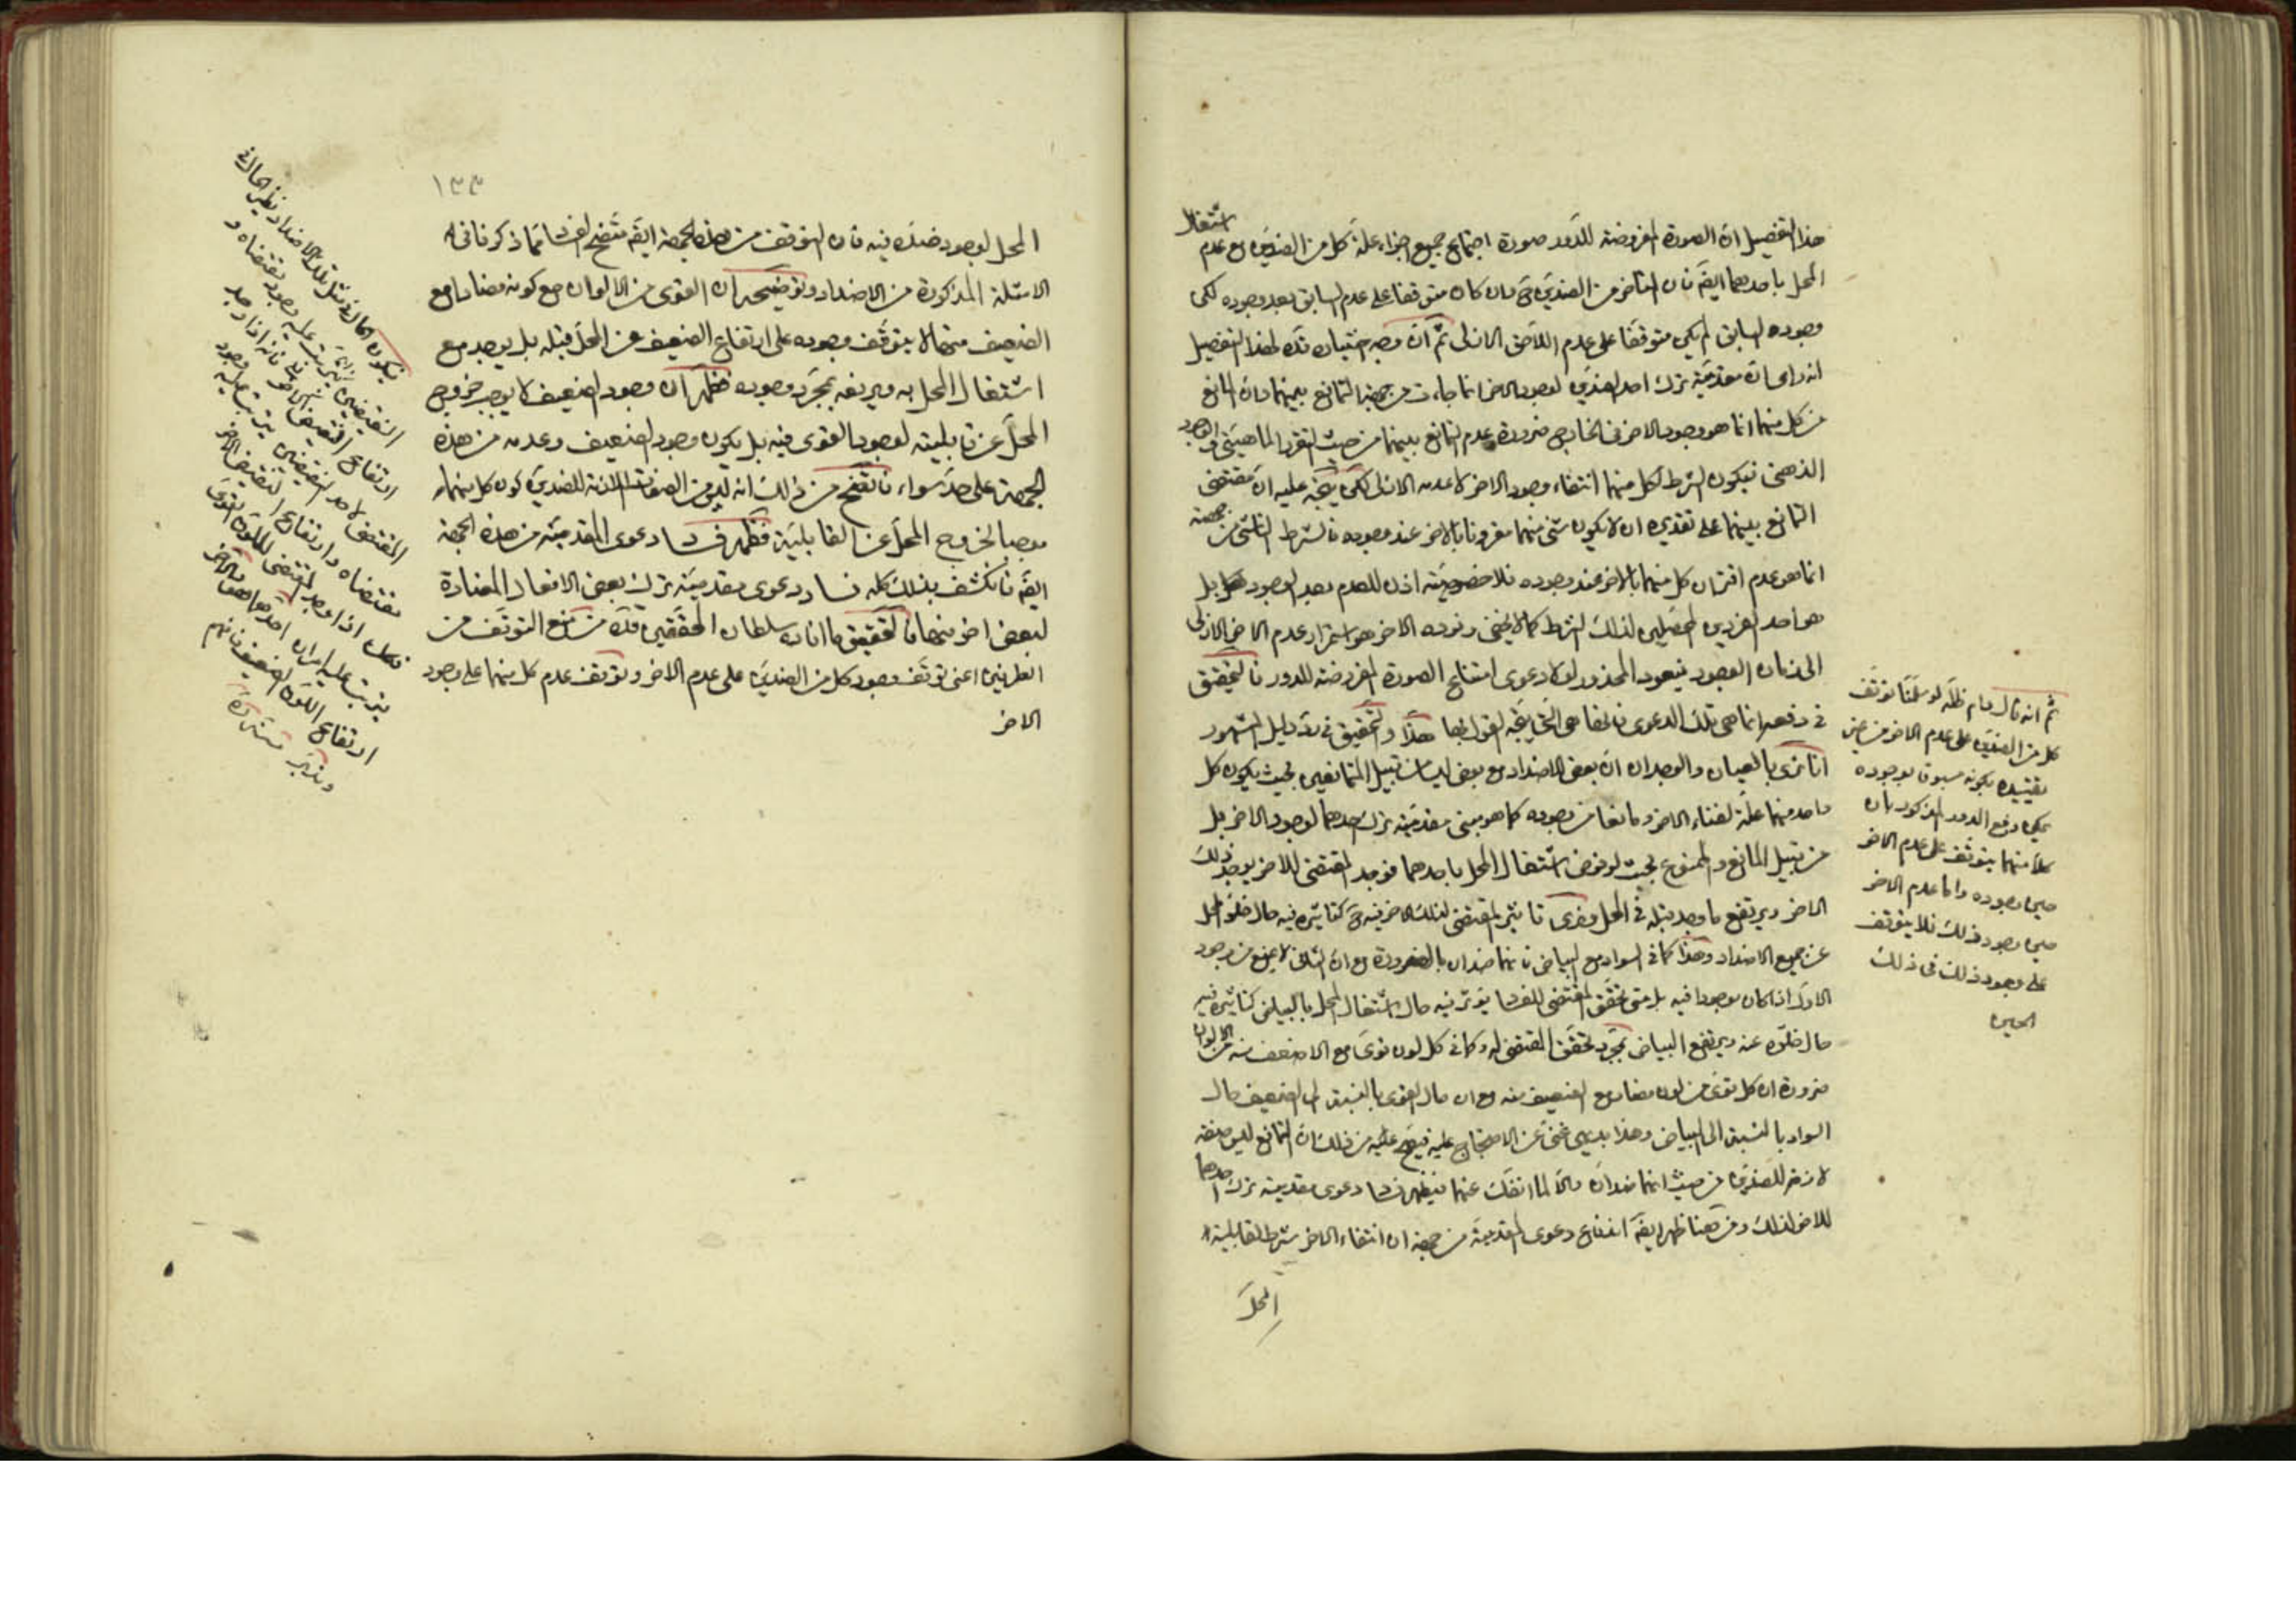 هذا التفصيل ان الصورة المفروضة للدور صورة اجتماع جميع اجزاء علة كل من الضدين مع عدم اشتغال
المحل باحدهما ايضَ فان المتأخر من الضدين ح وان كان متوقفا على عدم السابق بعد وجوده لكن
وجود السابق لم يكن متوقفا على عدم اللاحق الازلى ثم ان وجه اختياره قده لهذا التفصيل
انه راى ان مقدمية ترك احد الضدين لوجود الاخر انما جاءت من جهة التمانع بينهما وان المانع
من كل منهما انما هو وجود الاخر فى الخارج ضرورة عدم التمانع بينهما من حيث التقرر الماهيتى و الوجود
الذهنى فيكون الشرط لكل منهما انتفاء وجود الاخر لا عدمه الازلى لكن يتجه عليه ان مقتضى
التمانع بينهما على تقديره ان لا يكون شئ منهما مقرونا بالاخر عند وجوده فالشرط الناشى من جهته
انما هو عدم اقتران كل منهما بالاخر عند وجوده فلا خصوصية اذن للعدم بعد الوجود بل
هو احد الفردين المحصلين لذلك الشرط كما لا يخفى وفرده الاخر هو استمرار عدم الاخر الازلى
الى زمان الوجود فيعود المحذور لولا دعوى امتناع الصورة المفروضة للدور فالتحقيق
فى دفعه انما هى تلك الدعوى فانها هى التى يتجه القول بها هذا والتحقيق فى رد دليل المشهور
انا نرى بالعيان والوجدان ان بعض الاضداد مع بعض ليسا من قبيل المتمانعين بحيث يكون كل
واحد منهما علة لفناء الاخر ومانعا من وجوده كما هو مبنى مقدمية ترك احدهما لوجود الاخر بل
من قبيل المانع والممنوع بحيث لو فرض اشتغال المحل باحدهما فوجد المقتضى للاخر يوجد ذلك
الاخر ويرتفع ما وجد قبله فى المحل ونرى تاثير المقتضى لذلك الاخر فيه ح كتاثيره فيه حال خلو المحل
عن جميع الاضداد وهذا كما فى السواد مع البياض فانهما ضدان بالضرورة مع ان الثانى لا يمنع من وجود
الاول اذا كان موجودا فيه بل متى تحقق المقتضى للسواد يؤثر فيه حال اشتغال المحل بالبياض كتاثيره فيه
حال خلوه عنه ويرتفع البياض بمجرد تحقق المقتضى له وكما فى كل لون قوى مع الاضعف منه من الالوان
ضرورة ان كل قوى من لون مضاد مع الضعيف منه مع ان حال القوى بالنسبة الى الضعيف حال
السواد بالنسبة الى البياض وهذا بديهى غنى عن الاحتجاج عليه فيتضح من ذلك ان التمانع ليس صفة
لازمة للضدين من حيث انهما ضدان والا لما انفك عنهما فيظهر فساد دعوى مقدمية ترك احدهما
للاخر لذلك ومن هنا ظهر ايضَ اندفاع دعوى المقدمية من جهة ان انتفاء الاخر شرط لقابلية
المحل
ثم انه قال دام ظله لو سلمنا توقف
كل من الضدين على عدم الاخر من غير
تقييده بكونه مسبوقا بوجوده
يمكن دفع الدور المذكور بان
كلا منهما يتوقف على عدم الاخر
حين وجوده واما عدم الاخر
حين وجود ذلك فلا يتوقف
على وجود ذلك فى ذلك
الحين
١٣٣
المحل لوجود ضده فيه فان التوقف من هذه الجهة ايضَ متضح الفساد مما ذكرنا فى
الامثلة المذكورة من الاضداد وتوضيحه ان القوى من الالوان مع كونه مضادا مع
الضعيف منها لا يتوقف وجوده على ارتفاع الضعيف عن المحل قبله بل يوجد مع
اشتغال المحل به ويرفعه بمجرد وجوده فظهر ان وجود الضعيف لا يوجب خروج
المحل عن قابليته لوجود القوى فيه بل يكون وجود الضعيف وعدمه من هذه
الجهة على حد سواء فاتضح من ذلك انه ليس من الصفات اللازمة للضدين كون كل منهما
موجبا لخروج المحل عن القابلية فظهر فساد دعوى المقدمية من هذه الجهة
ايضَ فانكشف بذلك كله فساد دعوى مقدمية ترك بعض الافعال المضادة
لبعض اخر منها فالتحقيق ما افاده سلطان المحققين قده من منع التوقف من
الطرفين اعنى توقف وجود كل من الضدين على عدم الاخر وتوقف عدم كل منهما على وجود
الاخر
فيكون الحال فى مثل تلك الاضداد نظير الحال فى
النقيضين
ارتفاع النقيض الاخر فانه اذا وجد
المقتضى لاحد النقيضين يترتب عليه وجود
مقتضاه وارتفاع النقيض الاخر
فكك اذا وجد المقتضى للّون القوى
يترتب عليه امران احدهما
ارتفاع اللون الضعيف فافهم
وتدبر